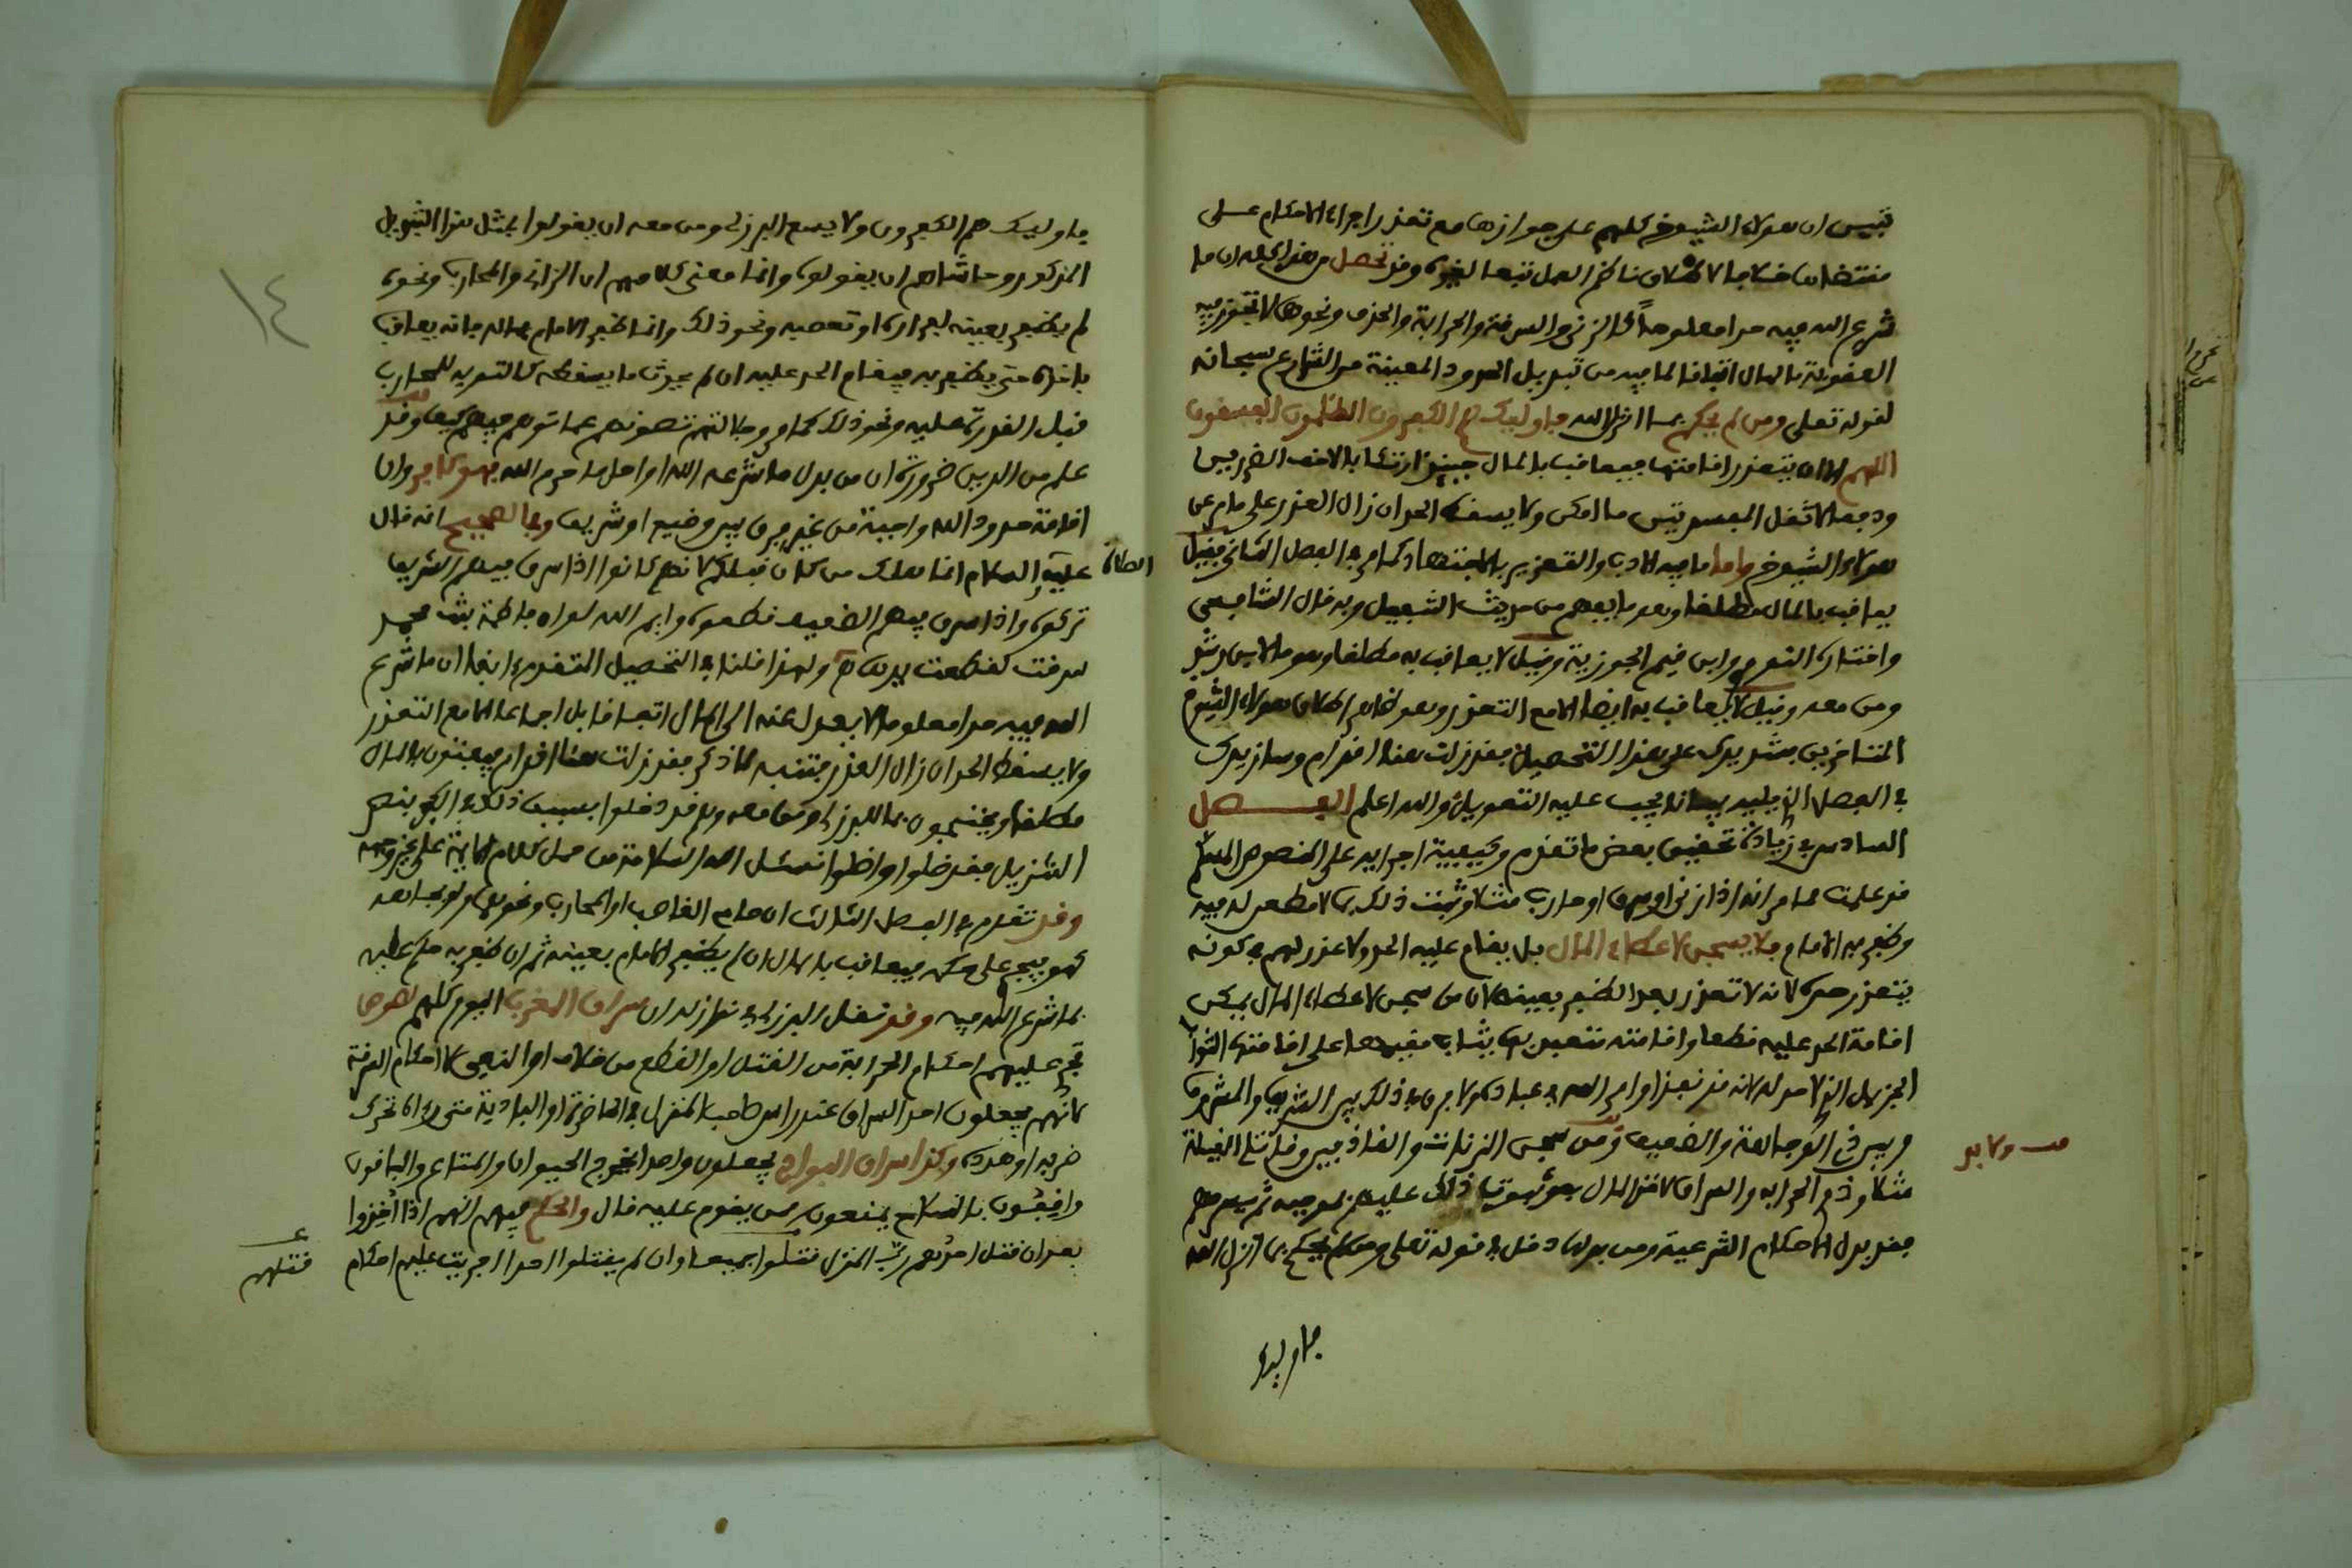 تبين ان هولاء الشيوخ كلهم على جوازها مع تعذر اجراء الاحكام على
مقتضاها العمل تبعا لغيره وقد تحصل من هذا كله ان ما
شرع الله فيه حدا معلوما كالزنى والسرقة والحرابة والقذف ونحوها لا تجوز فيه
العقوبة بالمال اتفاقا لما فيه من تبديل الحدود المعينة من الشارع سبحانه
لقوله تعلى ومن لم يحكم بما انزل الله فاوليك هم الكفرون الظلمون الفسقون
اللهم الا ان يتعذر اقامتها فيعاقب بالمال حينئذ ارتكابا لاخف الضررين
ودفعا لاثقل المفسدتين ما امكن ولا يسقط الحد ان زال العذر على ما مر عن
هولاء الشيوخ واما ما فيه الادب والتعزير بالاجتهاد كما مر في الفصل الثاني فقيل
يعاقب بالمال مطلقا وهو ما يفهم من حديث وبه قال الشافعي
واختاره النووي وابن قيم الجوزية وقيل لا يعاقب به مطلقا وهو ما لابن رشد
ومن معه وقيل لا يعاقب به ايضا الا مع التعذر وهو ظاهر اطلاق هولاء الشيوخ
المتاخرين فشد يدك على هذا التحصيل فقد زلت هنا اقدام وسازيدك
في الفصل الذي يليه بيانا يجب عليه التعويل والله اعلم الفصل
السادس في زيادة تحقيق بعض ما تقدم وكيفية اجرايه على المنصوص المسلم
قد علمت مما مر انه اذا زنى او سرق او حارب مثلا وثبت ذلك بما لا مطعن له فيه
وظفر به الامام فلا يسجن لاعطاء المال بل يقام عليه الحد ولا عذر لهم في كونه
يتعذر حده لانه لا تعذر بعد الظفر بعينه لان من سجن لاعطاء المال يمكن
اقامة الحد عليه قطعا واقامته متعبد بها يثاب مقيمها على اقامتها الثواب
الجزيل الذي لا حد له لانه قد نفذ اوامر الله في عباده ولا فرق في ذلك بين الشريف والمشروف
وبين ذي الوجاهة والضعيف ومن سجن الزناة والقاذفين وقاتل الغيلة
مثلا وذي الحرابة والسراق لاخذ المال ذلك عليهم بموجبه ثم سرحهم
فقد بدل الاحكام الشرعية ومن بدلها دخل في قوله تعلى ومن لم يحكم بما انزل الله
ولا بد
فاوليك
فاوليك هم الكفرون ولا يسع البرزلي ومن معه ان يقولوا بمثل هذا التبديل
المذكور وحاشاهم ان يقولوه وانما معنى كلامهم ان الزاني والمحارب ونحوه
لم يظفر بعينه لفراره او تعصبه ونحو ذلك وانما ظفر الامام بماله فانه يعاقب
باخذه حتى يظفر به فيقام الحد عليه ان لم يحدث ما يسقطه كالتوبة للمحارب
قبل القدرة عليه ونحو ذلك كما مر وجلالتهم تصونهم عما توهم فيهم كيف وقد
علم من الدين ضرورة ان من بدل ما شرعه الله او احل ما حرم الله فهو كافر وان
اقامة حدود الله واجبة من غير فرق بين وضيع او شريف وفي الصحيح انه قال
عليه السلام انما هلك من كان قبلكم لانهم كانوا اذا سرق فيهم الشريف
الصلاة
تركوه واذا سرق فيهم الضعيف قطعوه وايم الله لو ان فاطمة بنت محمد
سرقت لقطعت يدها ولهذا قلنا في التحصيل المتقدم انفا ان ما شرع
الله فيه حدا معلوما لا يعدل عنه الى المال اتفاقا بل اجماعا الا مع التعذر
ولا يسقط الحد ان زال العذر فتنبه لما ذكر فقد زلت هنا اقدام فيفتون بالمال
مطلقا ويحتجون بما للبرزلي ومن معه وهم قد دخلوا بسبب ذلك في الكفر بنص
التنزيل فقد ضلوا واضلوا نسئل الله السلامة من حمل كلام الايمة على غير وجهه
وقد تقدم في الفصل الثالث ان حاج الغاصب او المحارب ونحوهما ولو بجاهه
كهو فيجري على حكمه فيعاقب بالمال ان لم يظفر الامام بعينه ثم ان ظفر به حكم عليه
بما شرع الله فيه وقد نقل البرزلي في نوازله ان سراق المغرب اليوم كلهم لصوص
تجري عليهم احكام الحرابة من القتل او القطع من خلاف او النفي لا احكام السرقة
لانهم يجعلون احد السراق عند راس صاحب المنزل في الحاضرة او البادية متى راه تحرك
ضربه او هدده وكذا سراق البوادي يجعلون واحدا يخرج الحيوان والمتاع والباقون
واقفون بالسلاح يمنعون من يقوم عليه قال والحكم فيهم انهم اذا اخذوا
بعد ان قتل احدهم رب المنزل قتلوا جميعا وان لم يقتلوا احدا اجريت عليهم احكام
قتلهم
١٤